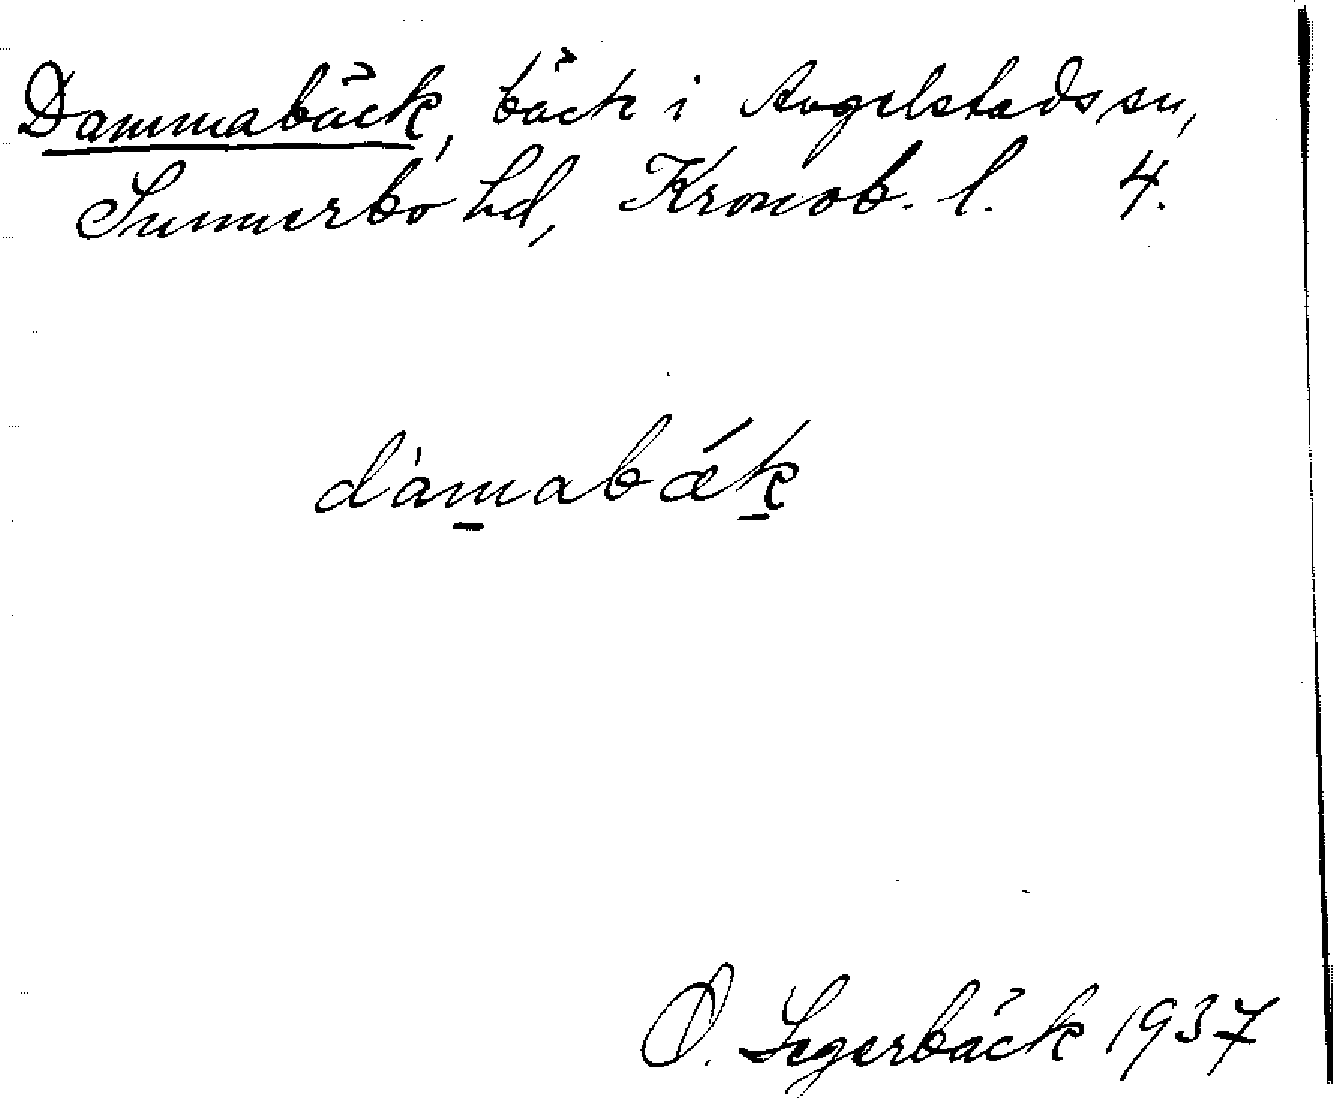 Dammabäck, bäck i Angelstads sn,
Sunnerbo hd, Kronob. l. 4.
dàmabǽk
O. Segerbäck 1937